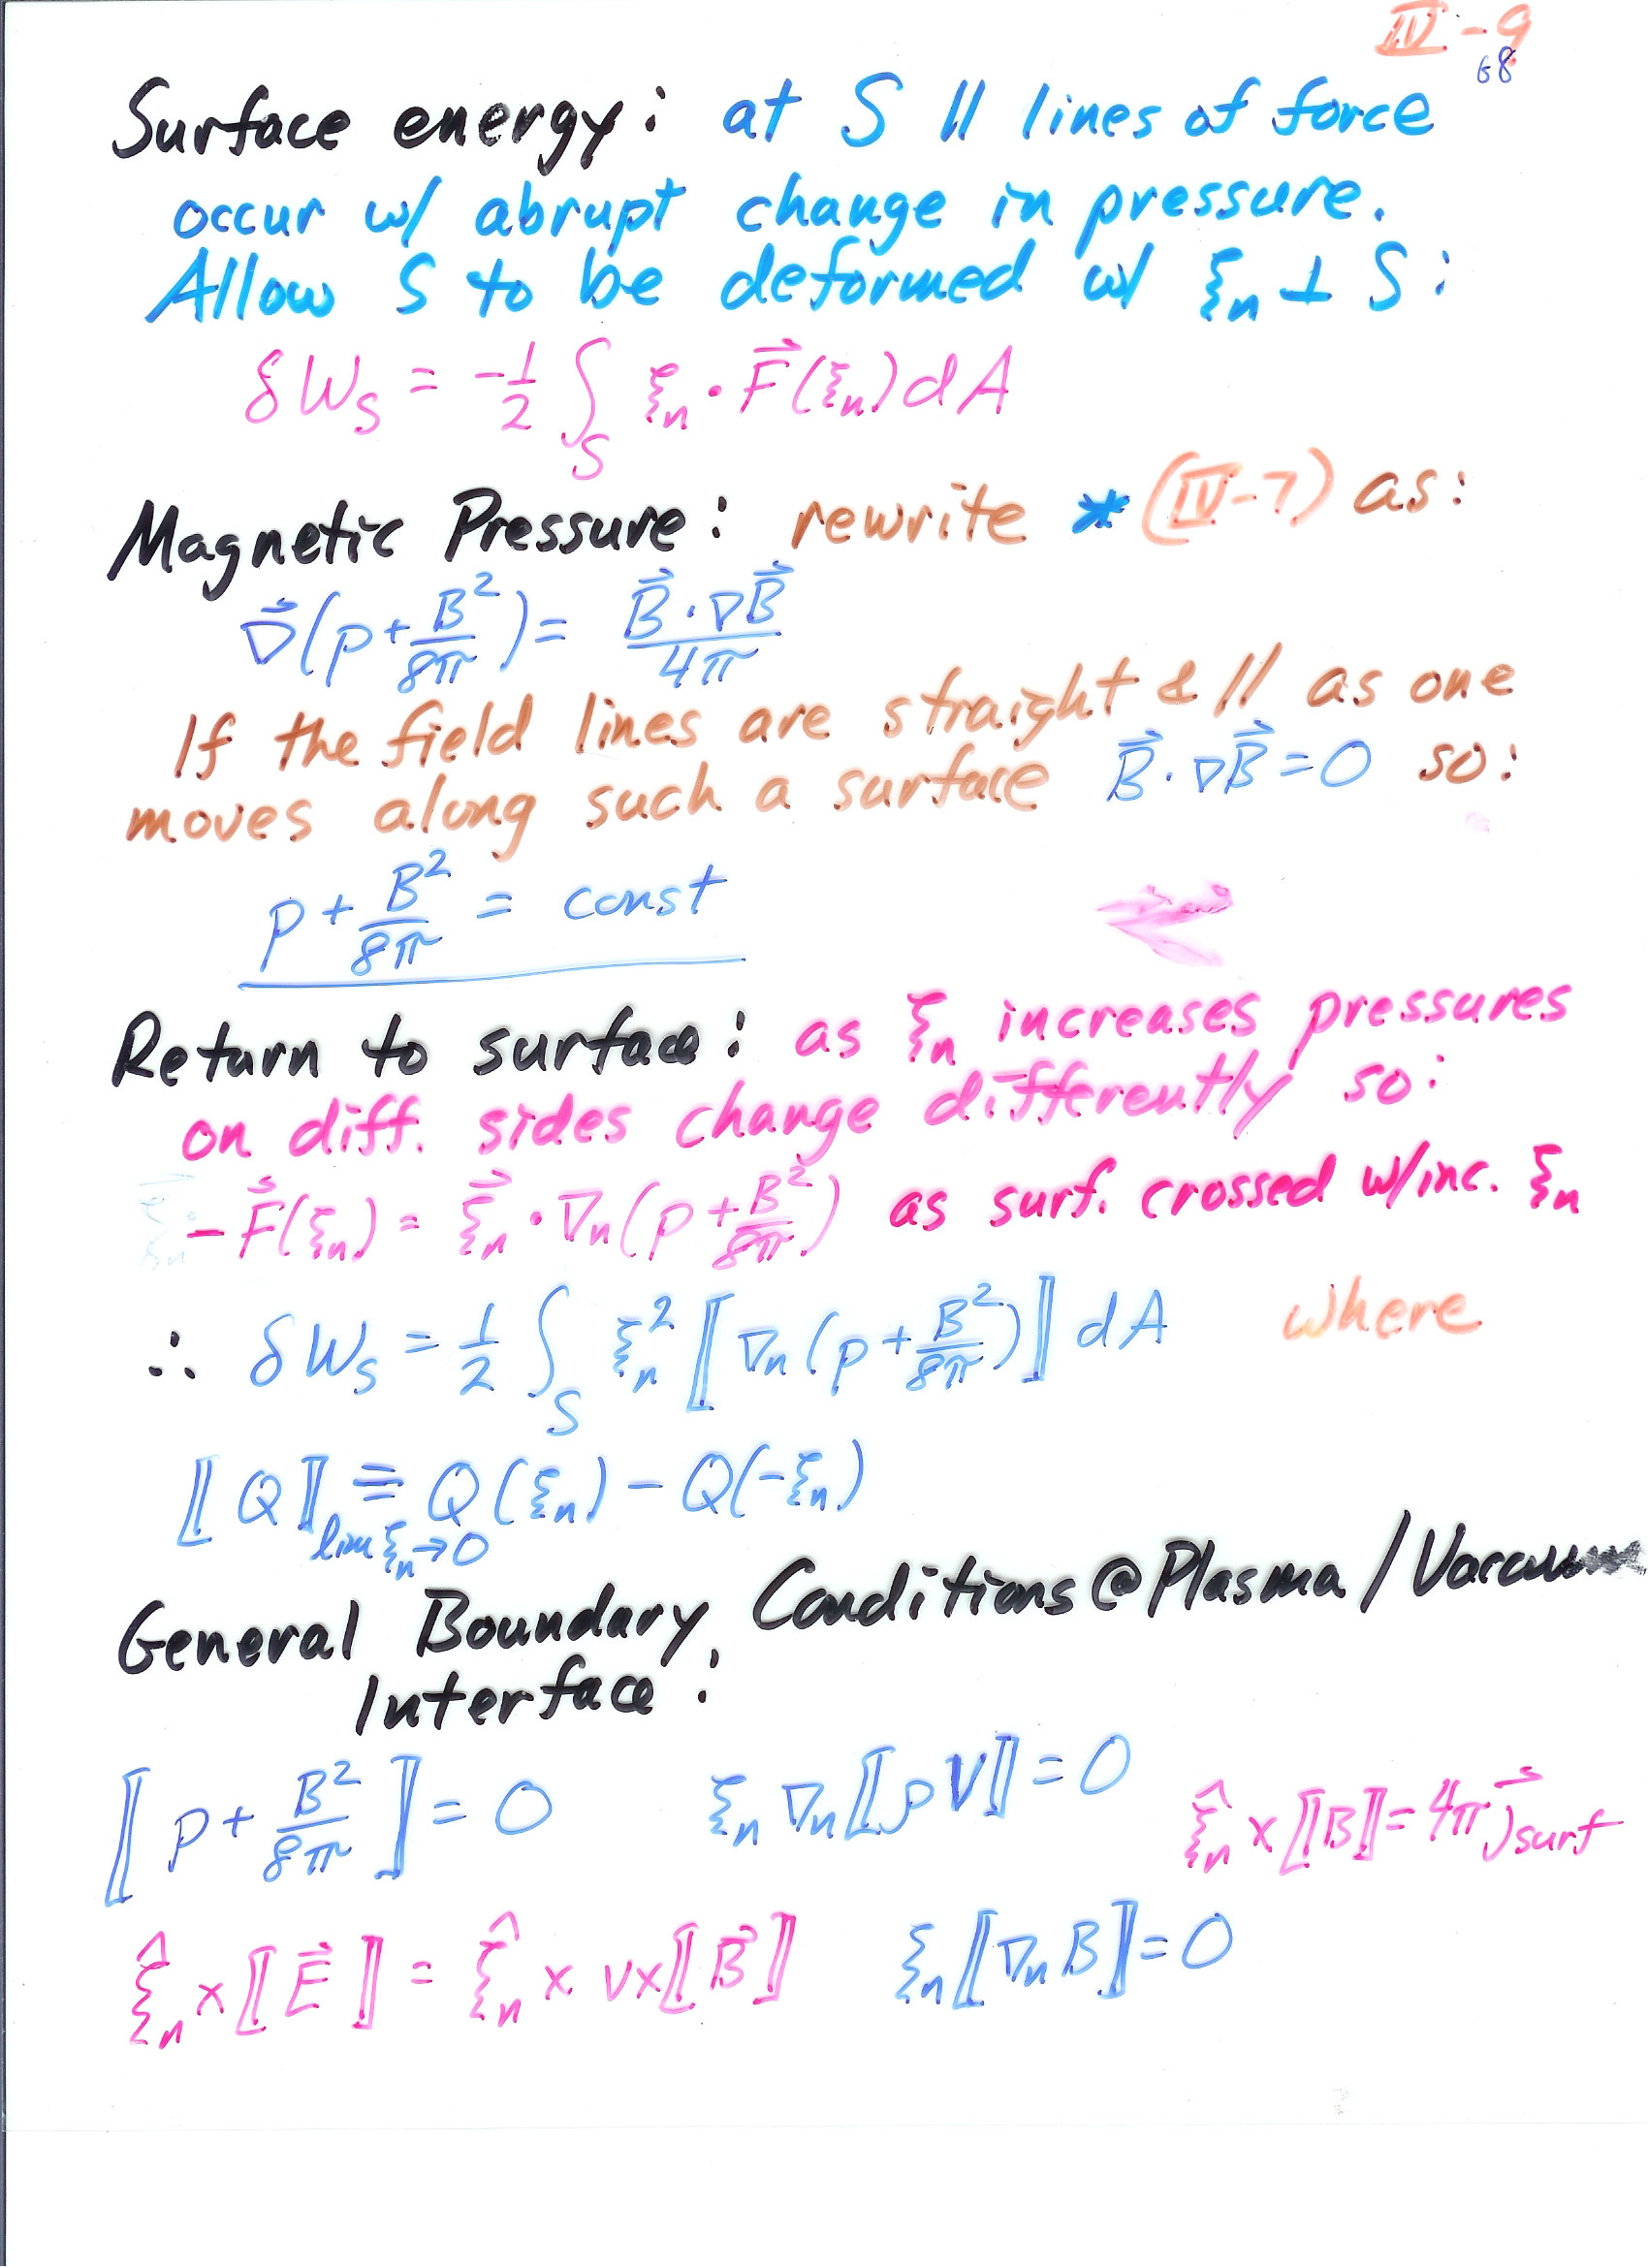 IV-9
68
Surface energy: at S // lines of force
occur w/ abrupt change in pressure.
Allow S to be deformed w/ ξₙ ⊥ S:
δW_S = -1/2 ∫_S ξₙ · F⃗(ξₙ) dA
Magnetic Pressure: rewrite * (IV-7) as:
∇⃗(p + B²/8π) = B⃗·∇B⃗/4π
If the field lines are straight & // as one
moves along such a surface B⃗·∇B⃗ = 0 so:
p + B²/8π = const
Return to surface: as ξₙ increases pressures
on diff. sides change differently so:
-F⃗(ξₙ) = ξ⃗ₙ · ∇ₙ(p + B²/8π) as surf. crossed w/inc. ξₙ
∴ δW_S = 1/2 ∫_S ξₙ² ⟦∇ₙ(p + B²/8π)⟧ dA where
⟦Q⟧_{lim ξₙ→0} ≡ Q(ξₙ) - Q(-ξₙ)
General Boundary Conditions @ Plasma / Vacuum
Interface:
⟦p + B²/8π⟧ = 0 ξₙ ∇ₙ ⟦ρV⟧ = 0 ξ̂ₙ × ⟦B⟧ = 4π j⃗_surf
ξ̂ₙ × ⟦E⃗⟧ = ξ̂ₙ × v × ⟦B⃗⟧ ξₙ ⟦∇ₙ B⟧ = 0